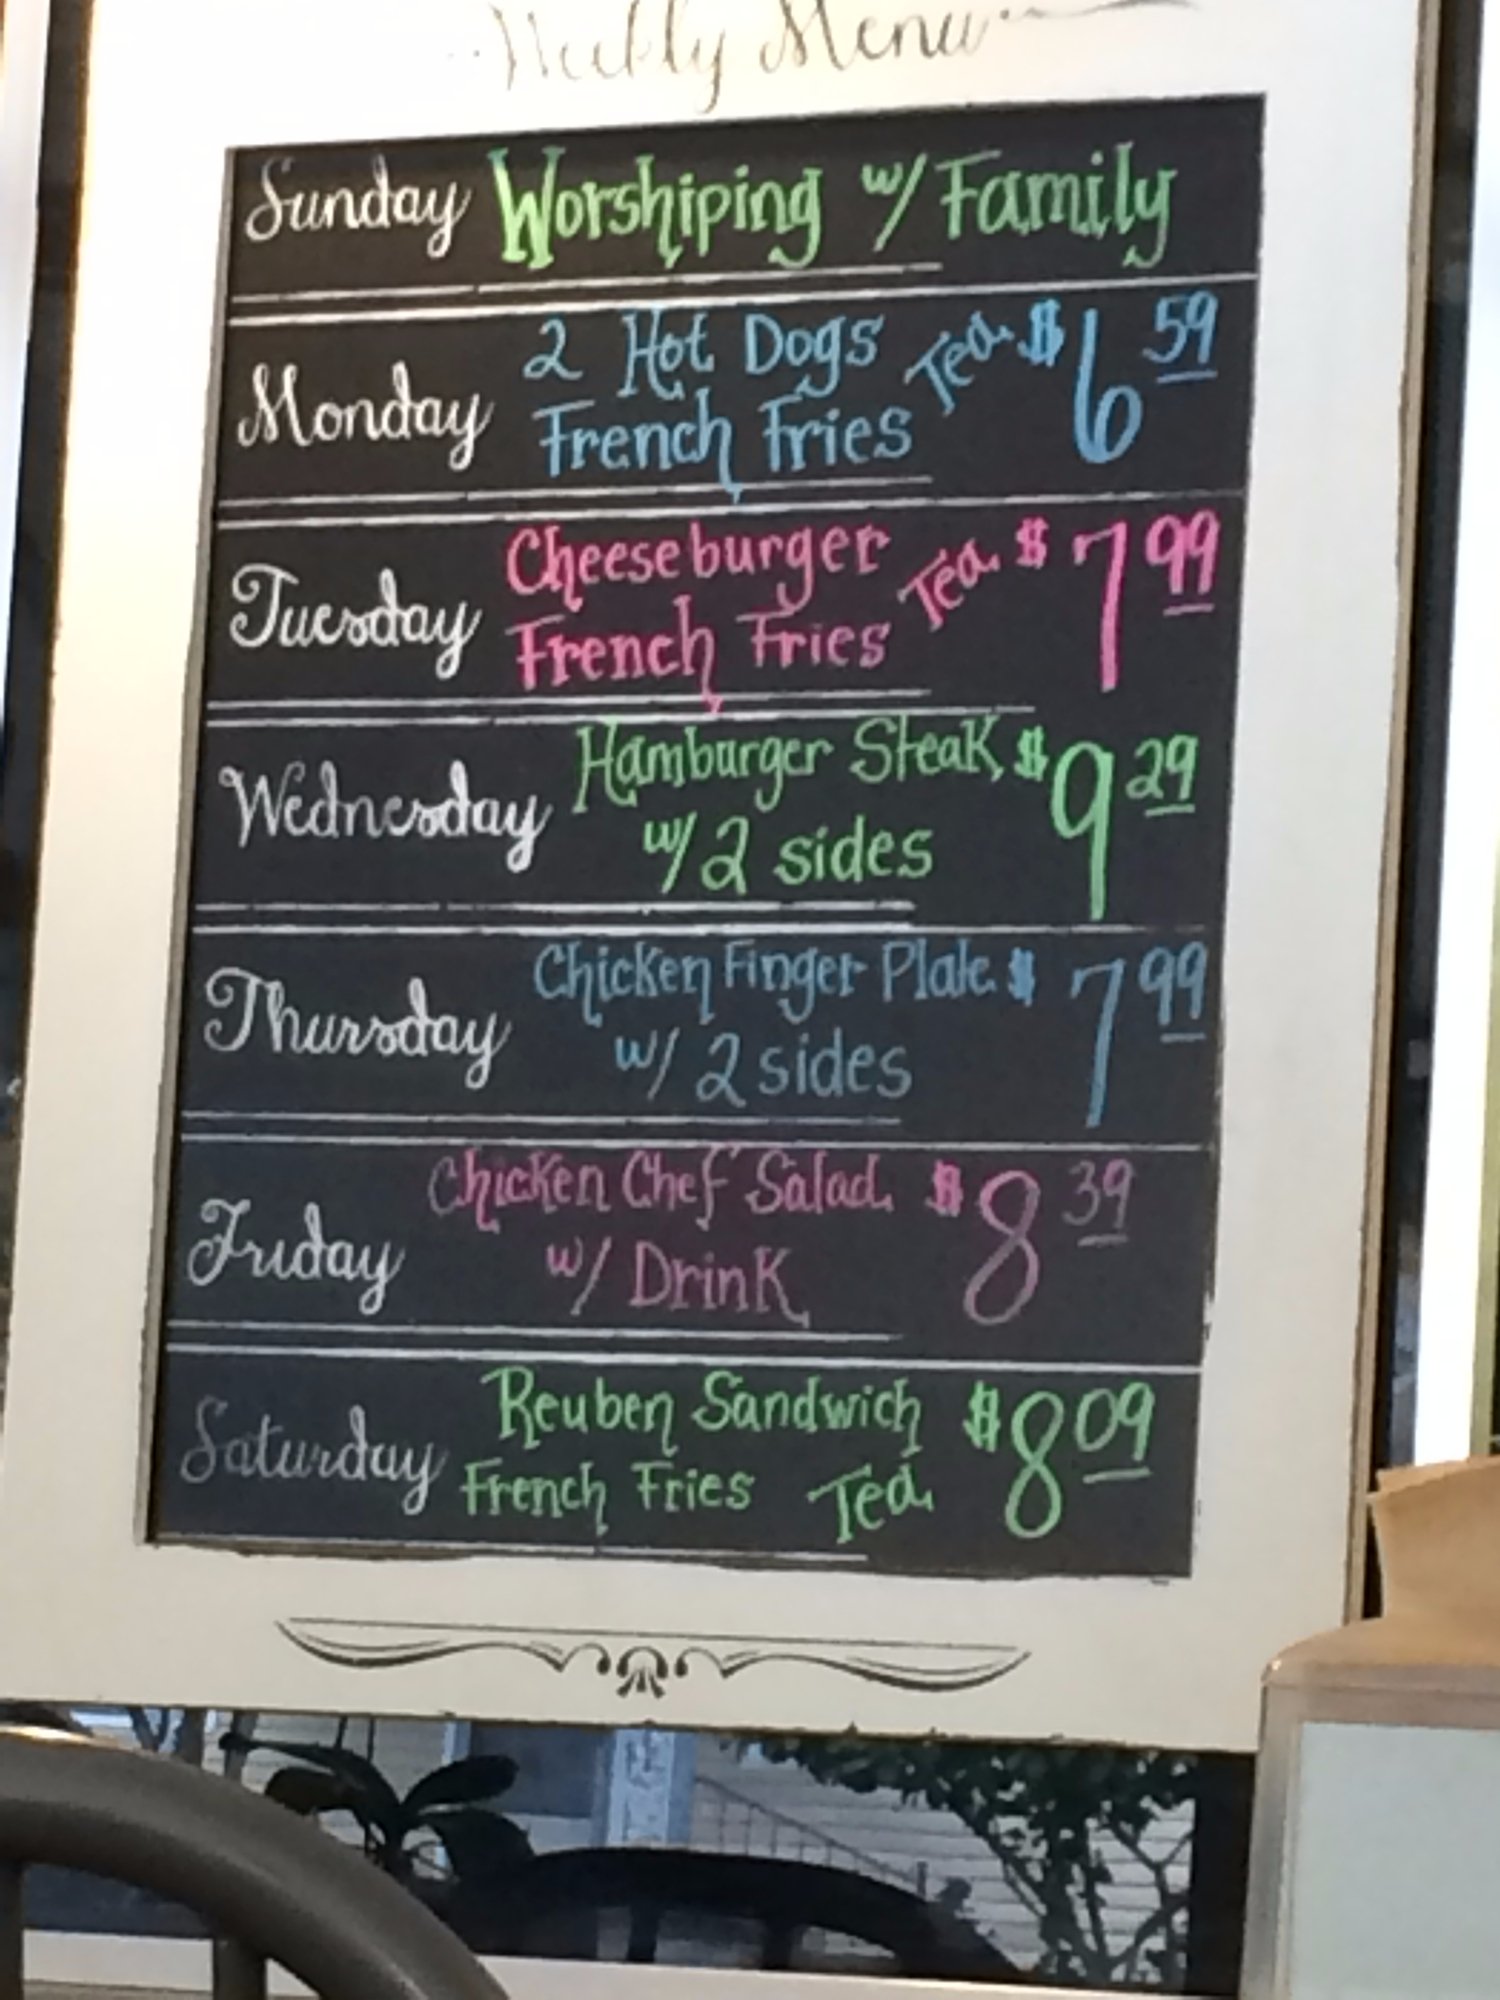 Weekly Menu
Sunday Worshiping w/ Family
Monday 2 Hot Dogs French Fries Tea $6.59
Tuesday Cheeseburger French Fries Tea $7.99
Wednesday Hamburger Steak $9.29
w/ 2 sides
Thursday Chicken Finger Plate $7.99
w/ 2 sides
Friday Chicken Chef Salad $8.39
w/ Drink
Saturday Reuben Sandwich $8.09
French Fries Tea